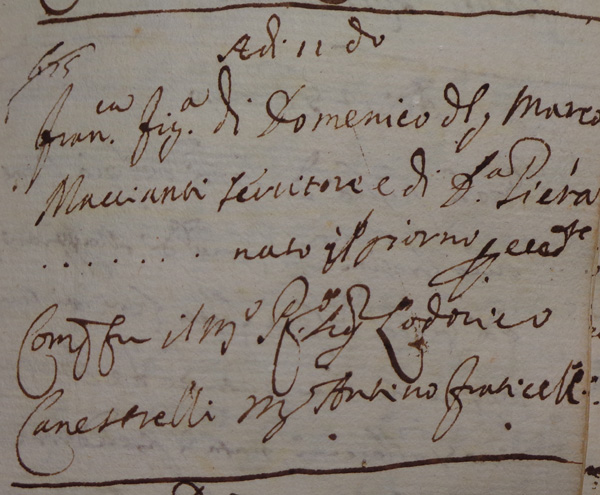 Adi 11 do
Fran.ca fig.a di Domenico del q Marco
Maccianti servitore e di D.a Piera
. . . . . . . . nato il giorno preced.te
Comp.e fu il M.o R.o Sig.r Lodovico
Canestrelli Antino Fraticelli